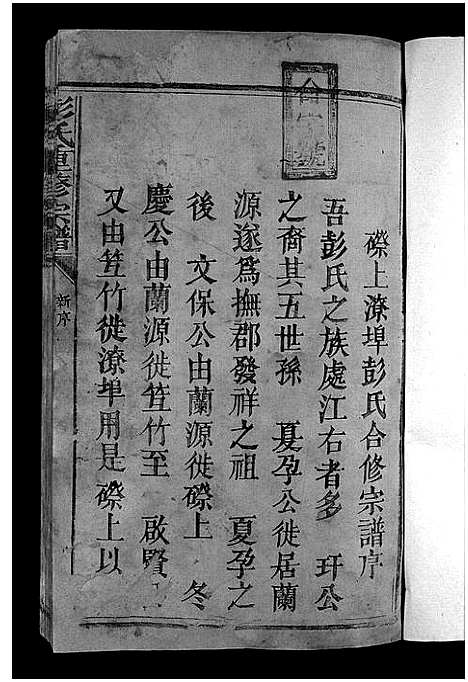 磜上潦埠彭氏合修宗譜序
吾彭氏之族處江右者多 玕公
之裔其五世孫 夏孕公徙居蘭
源遂爲撫郡發祥之祖 夏孕之
後 文保公由蘭源徙磜上 冬
慶公由蘭源徙笪竹至 啟賢
又由笪竹徙潦埠用是磜上以
彭氏重修宗譜
新序